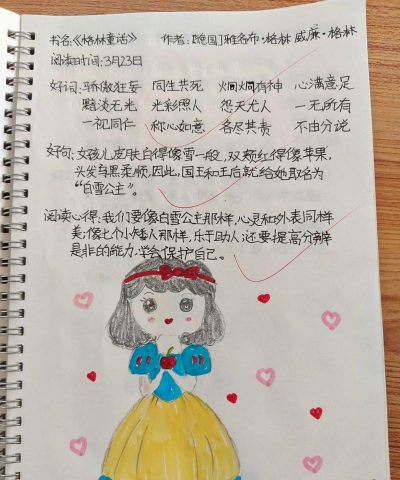 书名:《格林童话》 作者:[德国]雅各布·格林 威廉·格林
阅读时间:3月23日
好词:骄傲狂妄 同生共死 炯炯有神 心满意足
黯淡无光 光彩照人 怨天尤人 一无所有
一视同仁 称心如意 各尽共责 不由分说
好句:女孩儿皮肤白得像雪一般,双颊红得像苹果,
头发乌黑柔顺,因此,国王和王后就给她取名为
“白雪公主”。
阅读心得:我们要像白雪公主那样,心灵和外表同样
美;像七个小矮人那样,乐于助人;还要提高分辨
是非的能力,学会保护自己。